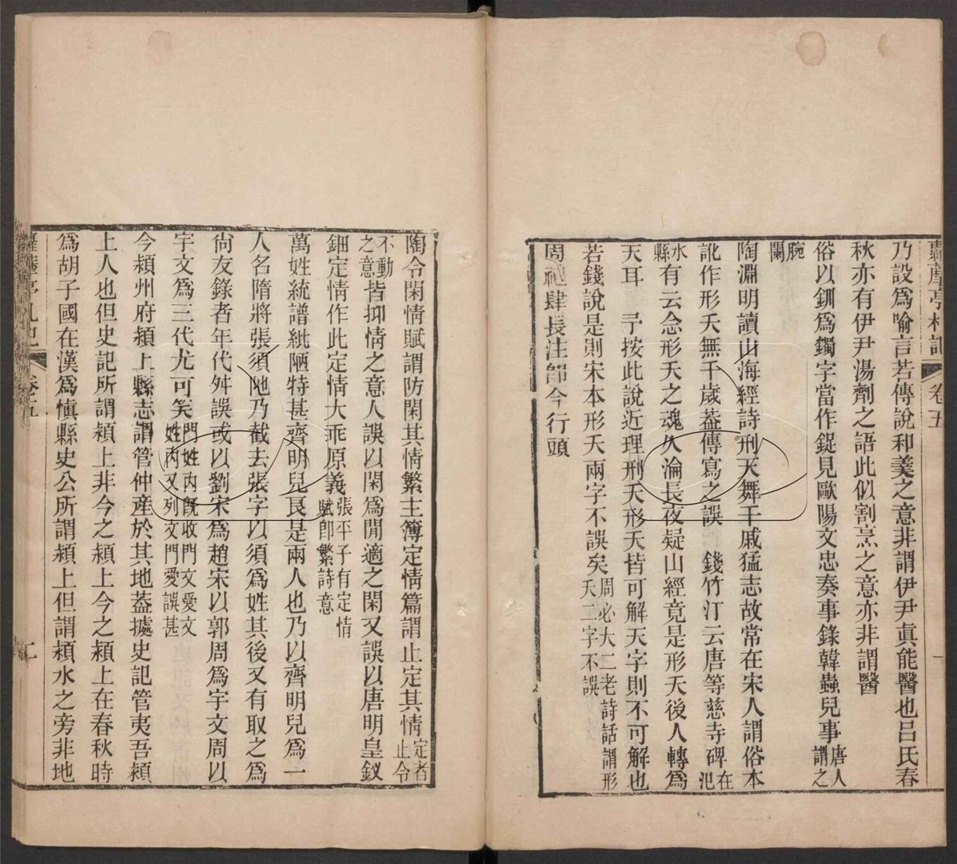 蘿藦亭札記 卷五
乃設爲喻言若傅說和羹之意非謂伊尹眞能醫也呂氏春
秋亦有伊尹湯劑之語此似割烹之意亦非謂醫
俗以釧爲鐲字當作鋜見歐陽文忠奏事錄韓蟲兒事唐人謂之
腕闌
陶淵明讀山海經詩刑天舞干戚猛志故常在宋人謂俗本
訛作形夭無千歲葢傳寫之誤 錢竹汀云唐等慈寺碑在汜
水縣有云念形天之魂久淪長夜疑山經竟是形天後人轉爲
天耳 予按此說近理刑天形天皆可解天字則不可解也
若錢說是則宋本形天兩字不誤矣周必大二老詩話謂形夭二字不誤
周禮肆長注師今行頭
陶令閑情賦謂防閑其情繁主簿定情篇謂止定其情定者止令
不動之意皆抑情之意人誤以閑爲閒適之閑又誤以唐明皇釵
鈿定情作此定情大乖原義張平子有定情賦卽繁詩意
萬姓統譜紕陋特甚齊明兒長是兩人也乃以齊明兒爲一
人名隋將張須陁乃截去張字以須爲姓其後又有取之爲
尙友錄者年代舛誤或以劉宋爲趙宋以郭周爲宇文周以
宇文爲三代尤可笑門姓内旣收門文愛文姓内又列文門愛誤甚
今潁州府潁上縣志謂管仲產於其地葢據史記管夷吾潁
上人也但史記所謂潁上非今之潁上今之潁上在春秋時
爲胡子國在漢爲愼縣史公所謂潁上但謂潁水之旁非地
蘿藦亭札記 卷五